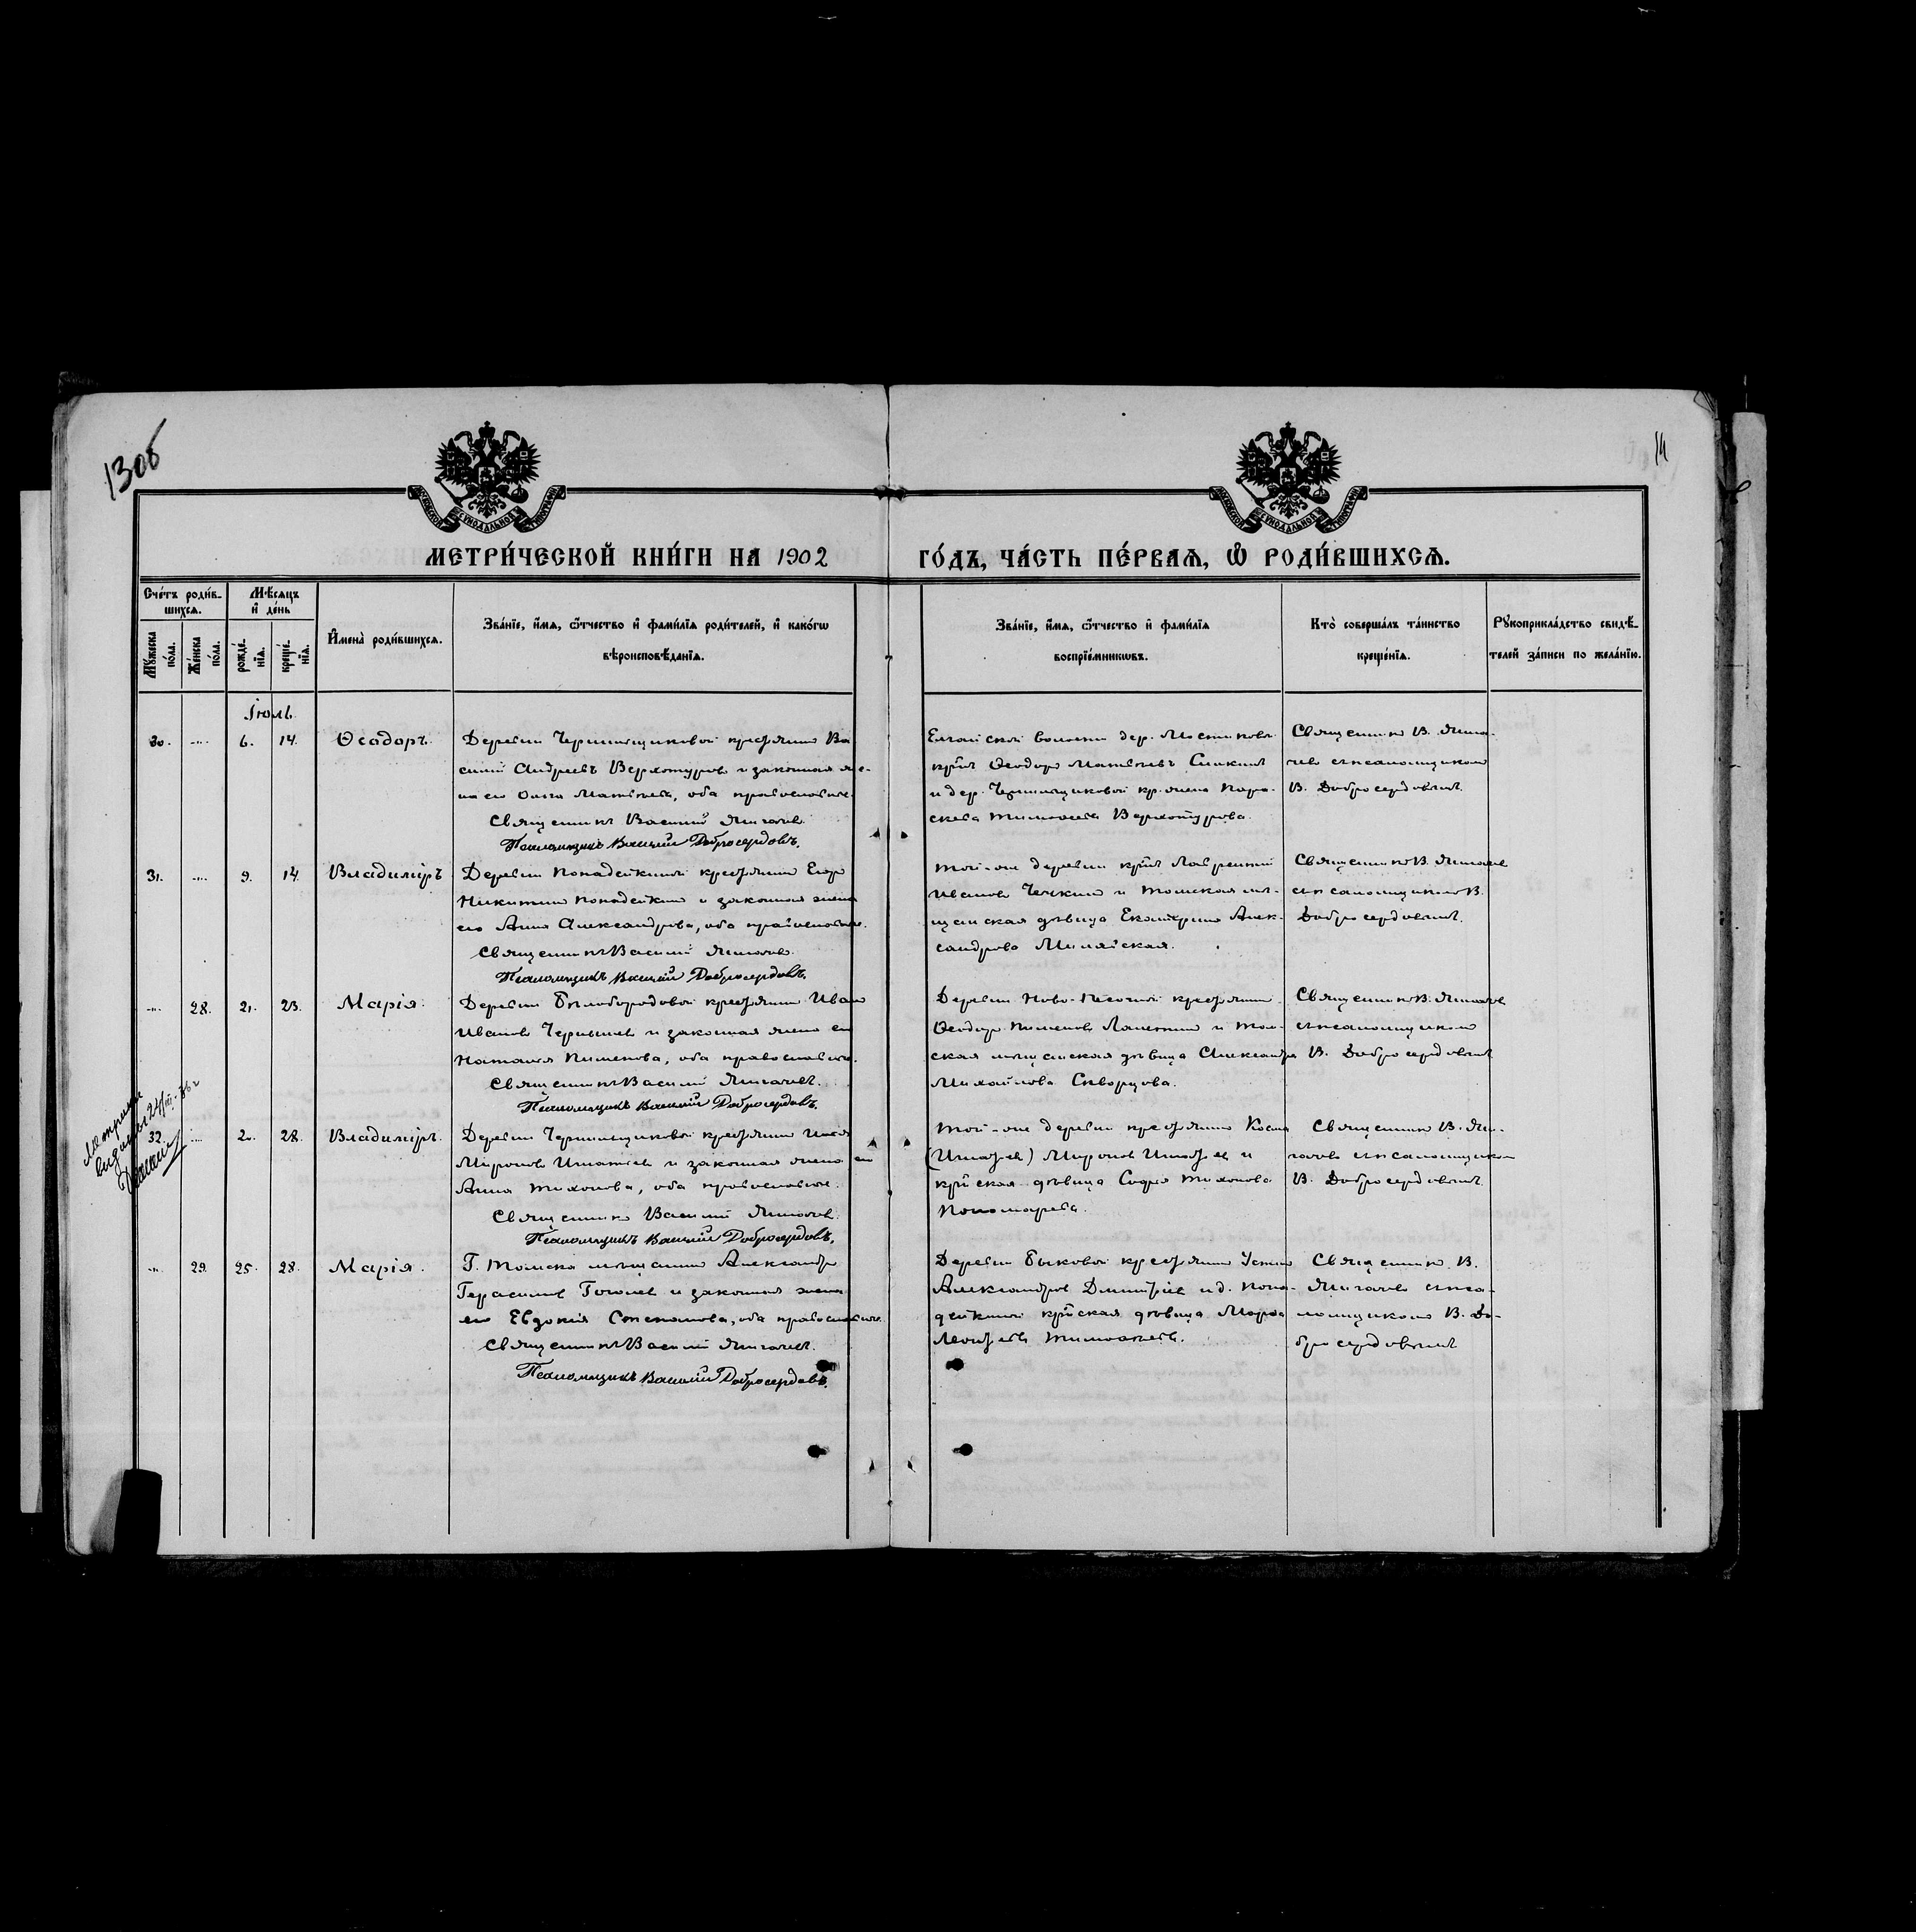 1306
14
МЕТРИ́ЧЕСКОЙ КНИ́ГИ НА 1902 ГО́ДЪ, ЧА́СТЬ ПЕ́РВАѦ, Ѽ РОДИ́ВШИХСѦ.
Счетъ роди́в-
шихсѧ.
Мѣсѧцъ
и҆ де́нь
Мꙋ́жеска по́ла.
Же́нска по́ла.
рожде́-
нїѧ.
креще́-
нїѧ.
И҆мена̀ роди́вшихсѧ.
Зва́нїе, и҆́мѧ, ѻ҆́тчество и҆ фами́лїѧ роди́телей, и҆ како́гѡ
вѣроисповѣ́данїѧ.
Зва́нїе, и҆́мѧ, ѻ҆́тчество и҆ фами́лїѧ
воспрїе́мникѡвъ.
Кто̀ соверша́лъ та́инство
креще́нїѧ.
Рꙋкоприкла́дство свидѣ́-
телей за́писи по жела́нїю.
Іюль.
30. -"- 6. 14. Ѳеодоръ.
Деревни Чернильщиковой крестьянинъ Ва
силий Андреевъ Верхотуровъ и законная же-
на его Матвѣева, оба православные.
Священникъ Василий
Псаломщикъ Василий Добросердовъ.
Елгайской волости дер.
кр̃нъ Ѳеодоръ Матвѣевъ
и дер. Чернильщиковой кр. жена Пара-
скева Тимоѳеева Верхотурова.
Священникъ В.
съ псаломщикомъ
В. Добросердовымъ.
31. -"- 9. 14. Владиміръ
Деревни Попадейкиной крестьянинъ Егоръ
Никитинъ Попадейкинъ и законная жена
его Анна Александрова, оба православные.
Священникъ Василий
Псаломщикъ Василий Добросердовъ.
Той-же деревни кр̃нъ Лаврентий
Ивановъ и Томская мѣ-
щанская дѣвица Екатерина Алек-
сандрова
Священникъ В.
съ псаломщикомъ В.
Добросердовымъ.
-"- 28. 21. 23. Марія.
Деревни Бѣлобородовой крестьянинъ Иванъ
Ивановъ Чернышевъ и законная жена его
Наталія Пименова, оба православные.
Священникъ Василий
Псаломщикъ Василий Добросердовъ.
Деревни Ново-Песочной крестьянинъ
Ѳеодоръ Пименовъ и Том-
ская мѣщанская дѣвица Александра
Михайлова Скворцова.
Священникъ В.
съ псаломщикомъ
В. Добросердовымъ
Метрика
выдана 24/III-36 г
32. -"- 2. 28. Владиміръ.
Деревни Чернильщиковой крестьянинъ
Мироновъ Игнатьевъ и законная жена его
Анна Тихонова, оба православные.
Священникъ Василий
Псаломщикъ Василий Добросердовъ.
Той-же деревни крестьянинъ Косма
(Игнатьевъ) Мироновъ Игнатьевъ и
кр̃ская дѣвица Софія Тихонова
Пономарева.
Священникъ В.
съ псаломщикомъ
В. Добросердовымъ
-"- 29. 25. 28. Марія.
Г. Томска мѣщанинъ Александръ
Герасимовъ и законная жена
его Евдокія Степанова, оба православные.
Священникъ Василий
Псаломщикъ Василий Добросердовъ.
Деревни Быковой крестьянинъ Устинъ
Александровъ Дмитріевъ и д. Попа-
дейкиной кр̃ская дѣвица
Леонтьева Тимоѳеева.
Священникъ В.
съ пса-
ломщикомъ В. До-
бросердовымъ